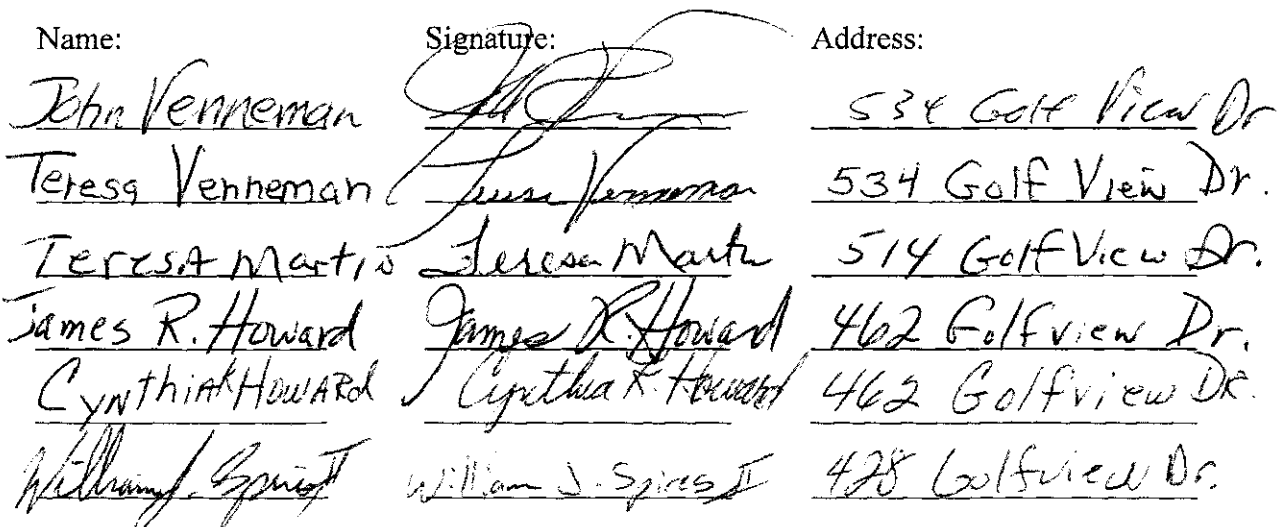 Name: Signature: Address:
John Venneman 534 Golf View Dr
Teresa Venneman Teresa Venneman 534 Golf View Dr.
Teresa Martin Teresa Martin 514 Golf View Dr.
James R. Howard James R. Howard 462 Golfview Dr.
Cynthia K Howard Cynthia K. Howard 462 Golfview Dr.
William J. Spires II William J. Spires II 428 Golfview Dr.